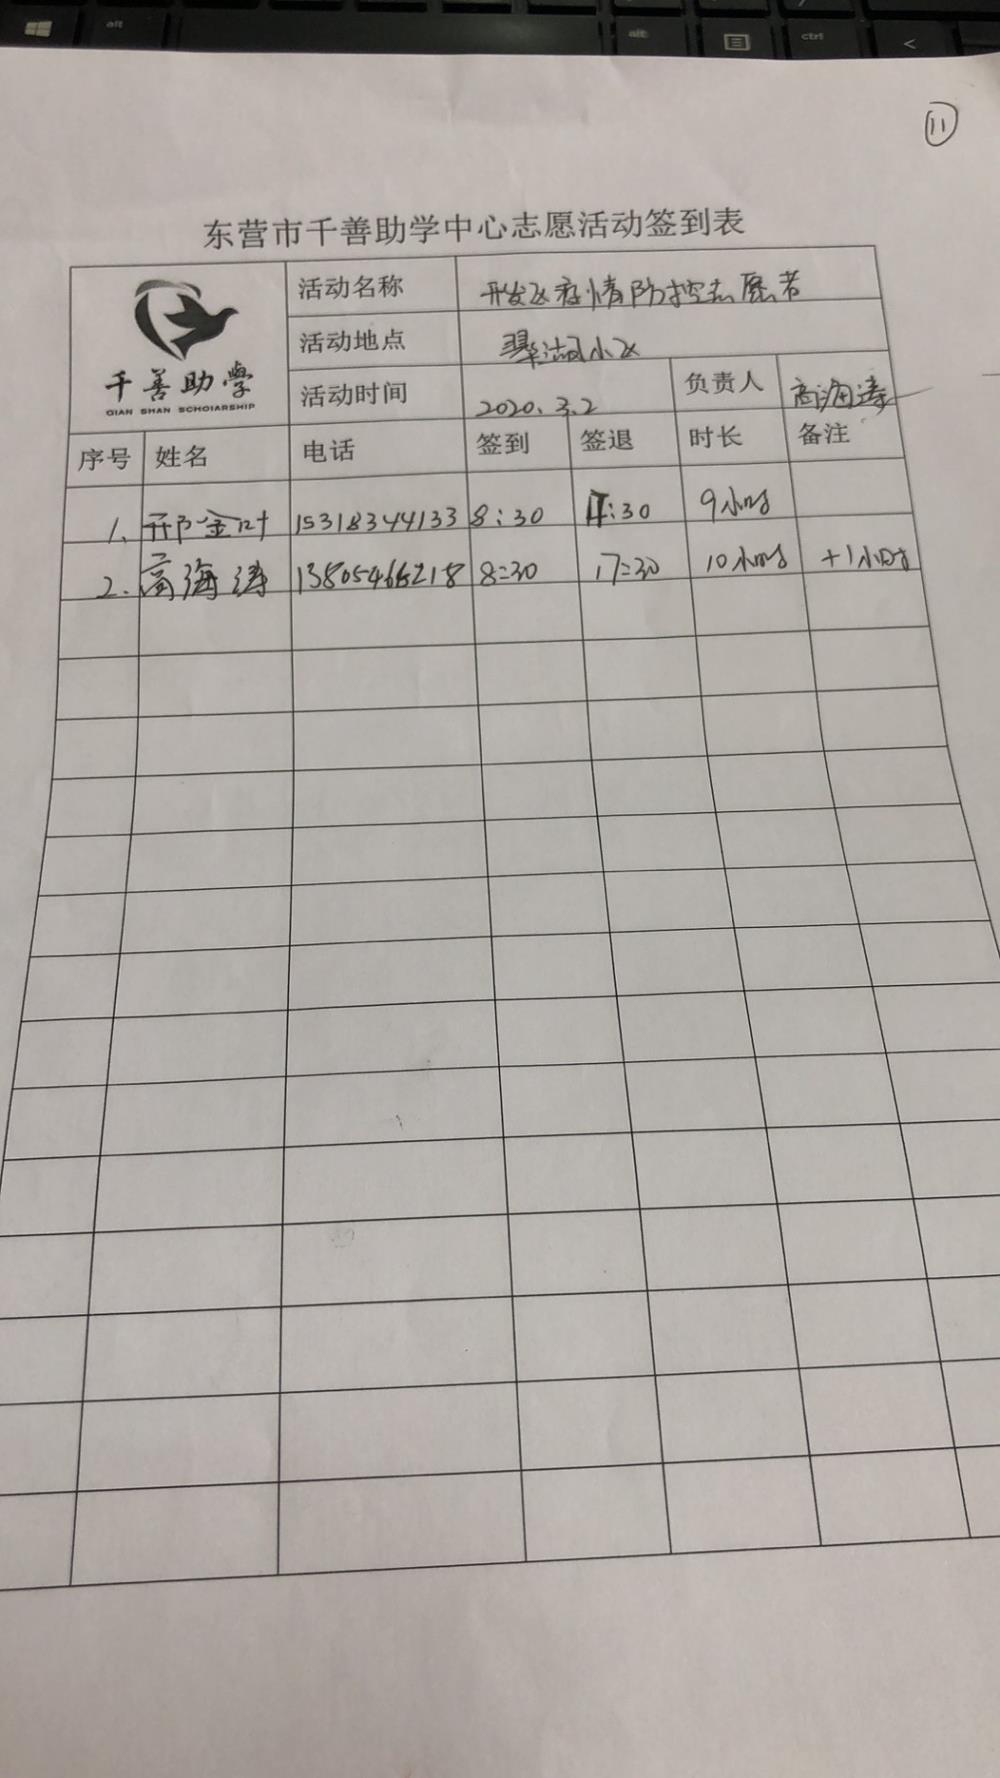 alt
alt
ctrl
<
11
东营市千善助学中心志愿活动签到表
千善助学
QIAN SHAN SCHOlARSHIP
活动名称 开发区疫情防控志愿者
活动地点 翠湖小区
活动时间 2020.3.2 负责人 高海涛
序号 姓名 电话 签到 签退 时长 备注
1. 金叶 15318344133 8:30 :30 9小时
2. 高海涛 13805466218 8:30 17:30 10小时 +1小时